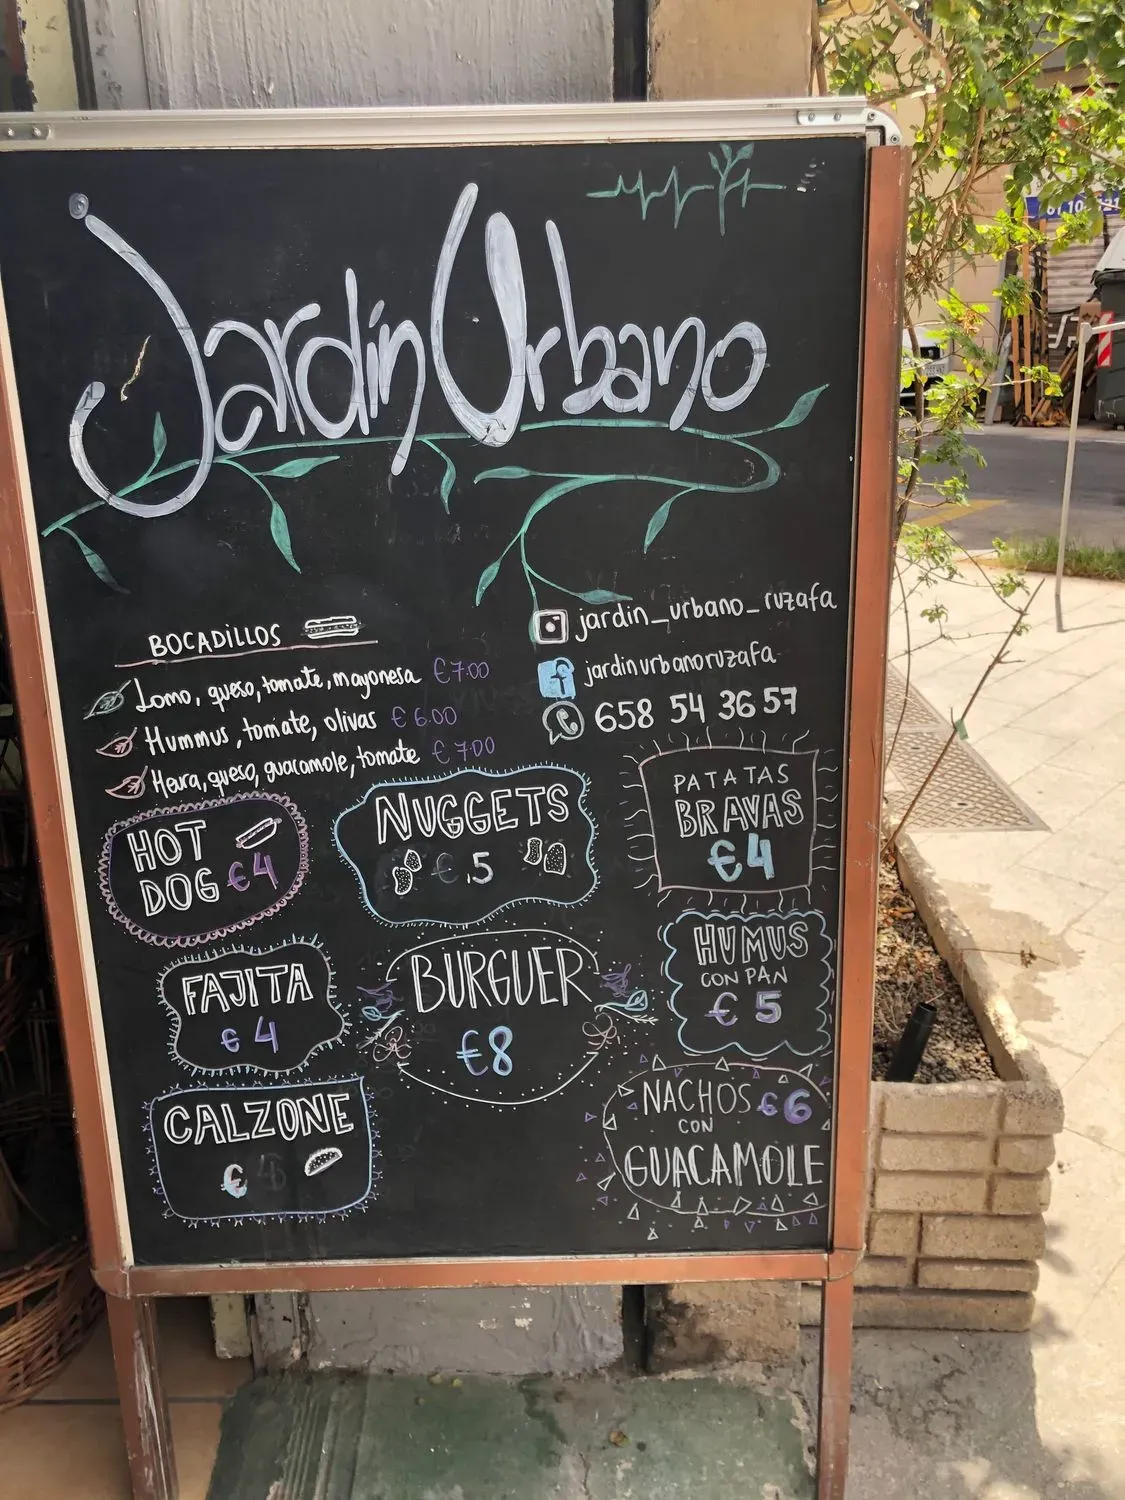 Jardín Urbano
BOCADILLOS
Lomo, queso, tomate, mayonesa €7.00
Hummus, tomate, olivas €6.00
Heura, queso, guacamole, tomate €7.00
jardin_urbano_ruzafa
jardinurbanoruzafa
658 54 36 57
HOT
DOG €4
NUGGETS
€.5
PATATAS
BRAVAS
€4
FAJITA
€4
BURGUER
€8
HUMUS
CON PAN
€5
CALZONE
€
NACHOS €6
CON
GUACAMOLE